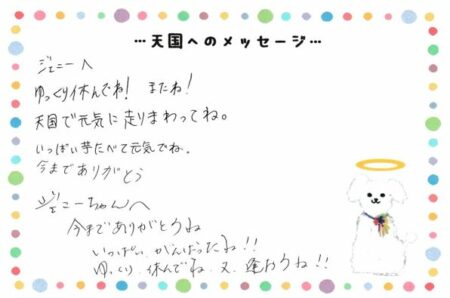 …天国へのメッセージ…
ジェニーへ
ゆっくり休んでね！ またね！
天国で元気に走りまわってね。
いっぱい芋たべて元気でね。
今までありがとう
ジェニーちゃんへ
今までありがとうね
いっぱい、がんばったね!!
ゆっくり、休んでね、又、逢おうね!!